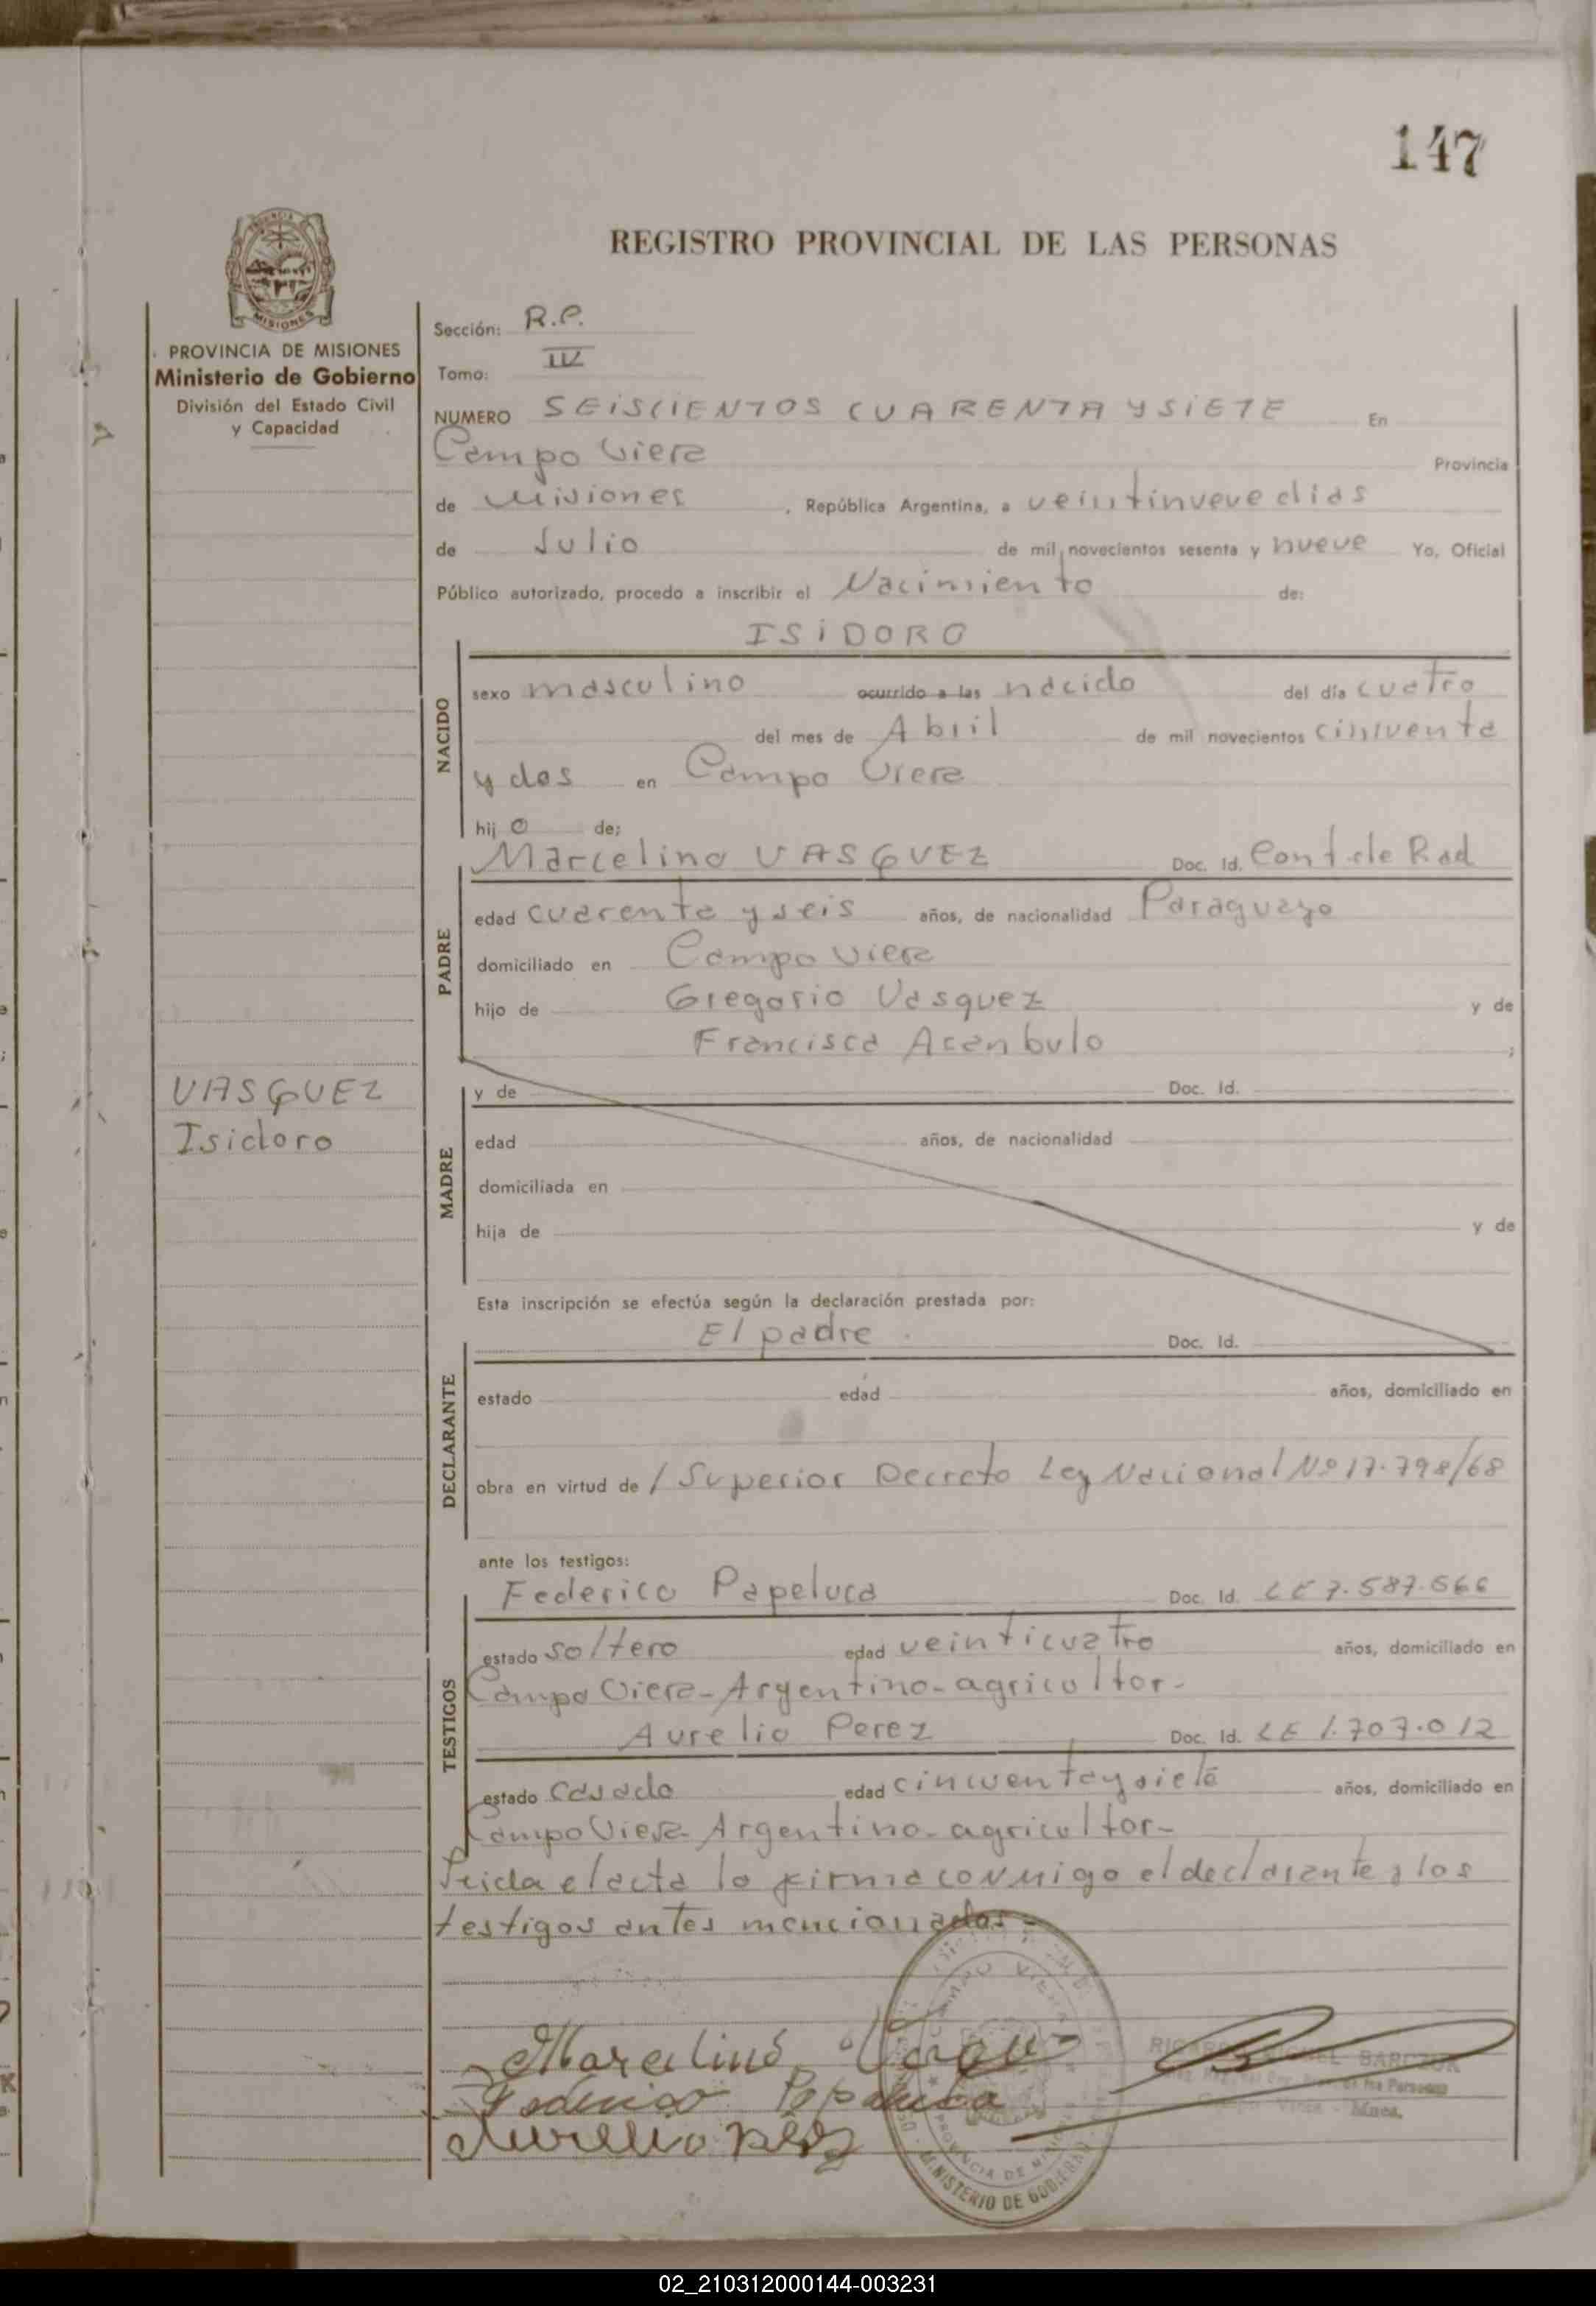 147
REGISTRO PROVINCIAL DE LAS PERSONAS
MISIONES
PROVINCIA DE MISIONES
Ministerio de Gobierno
División del Estado Civil
y Capacidad
Sección: R.P.
Tomo: IV
NUMERO SEISCIENTOS CUARENTA Y SIETE En
Campo Viera Provincia
de Misiones, República Argentina, a veintinueve dias
de Julio de mil novecientos sesenta y nueve Yo, Oficial
Público autorizado, procedo a inscribir el Nacimiento de:
ISIDORO
NACIDO
sexo masculino ocurrido a las nacido del día cuatro
del mes de Abril de mil novecientos cincuenta
y dos en Campo Viera
hijo de;
PADRE
Marcelino VASQUEZ Doc. Id. Cont. de Rad
edad cuarenta y seis años, de nacionalidad Paraguayo
domiciliado en Campo Viera
hijo de Gregorio Vasquez y de
Francisca
VASQUEZ
Isidoro
MADRE
y de Doc. Id.
edad años, de nacionalidad
domiciliada en
hija de y de
Esta inscripción se efectúa según la declaración prestada por:
DECLARANTE
El padre Doc. Id.
estado edad años, domiciliado en
obra en virtud de / Superior Decreto Ley Nacional Nº 17.798/68
ante los testigos:
TESTIGOS
Federico Papeluca Doc. Id. LE 7.587.566
estado soltero edad veinticuatro años, domiciliado en
Campo Viera - Argentino - agricultor -
Aurelio Perez Doc. Id. LE 1.707.012
estado casado edad cincuenta y siete años, domiciliado en
Campo Viera - Argentino - agricultor -
Leida el acta la firma conmigo el declarante y los
testigos antes mencionados -
Marcelino
Federico Papeluca
Aurelio Perez
CAMPO VIERA
PROVINCIA DE MISIONES
MINISTERIO DE GOBIERNO
BARCZUK
02_210312000144-003231